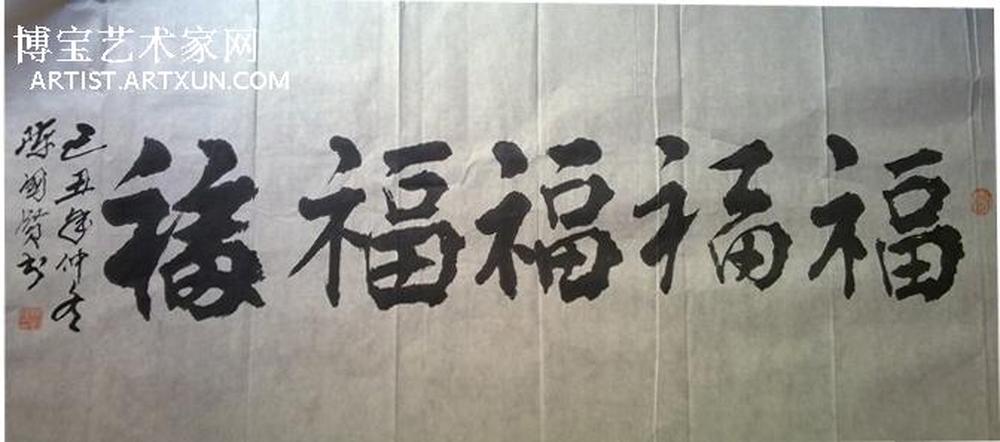 博宝艺术家网
ARTIST.ARTXUN.COM
福福福福福
己丑年仲冬
陈國賢书